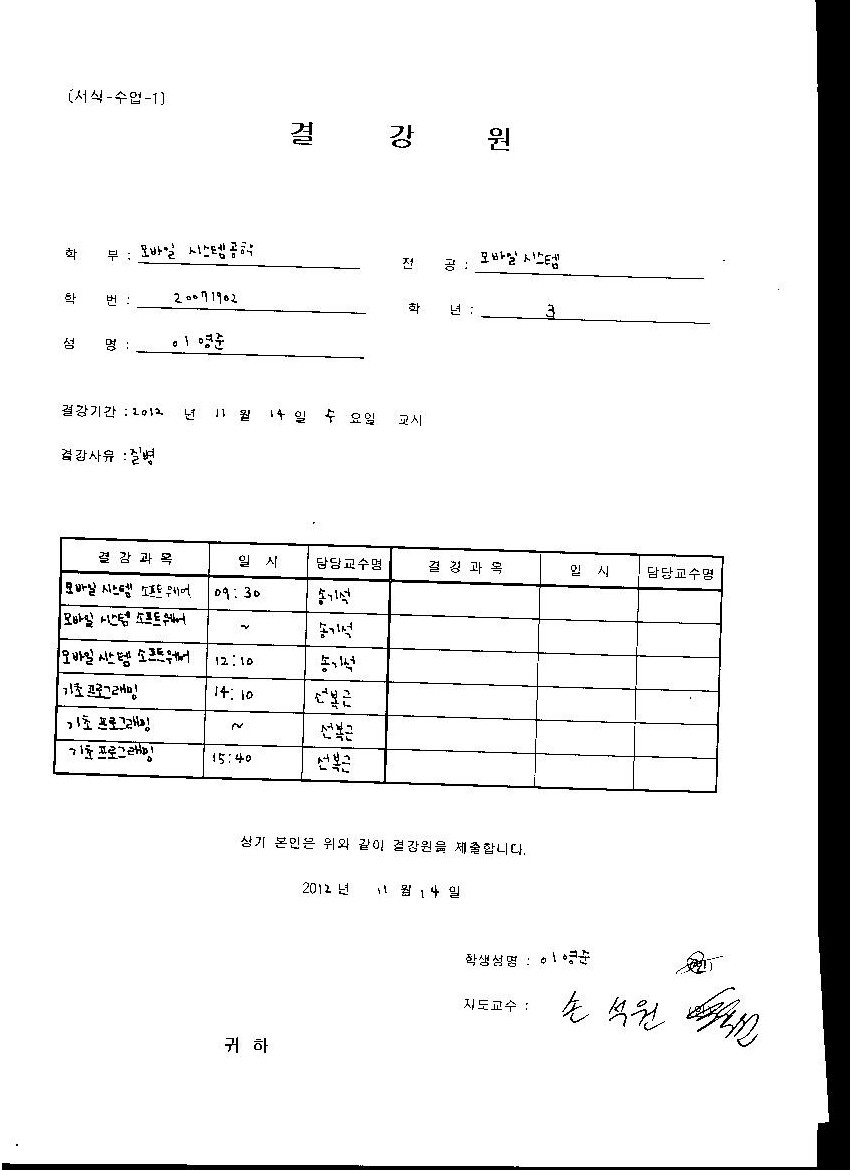 (서식-수업-1)
결 강 원
학 부 : 모바일 시스템공학 전 공 : 모바일 시스템
학 번 : 20071902 학 년 : 3
성 명 : 이영준
결강기간 : 2012 년 11 월 14 일 수 요일 교시
결강사유 : 질병
결 강 과 목 일 시 담당교수명 결 경 과 목 일 시 담당교수명
모바일 시스템 소프트웨어 09:30 송기석
모바일 시스템 소프트웨어 ~ 송기석
모바일 시스템 소프트웨어 12:10 송기석
기초프로그래밍 14:10 선복근
기초 프로그래밍 ~ 선복근
기초프로그래밍 15:40 선복근
상기 본인은 위와 같이 결강원을 제출합니다.
2012 년 11 월 14 일
학생성명 : 이영준
지도교수 : 손석원
귀 하